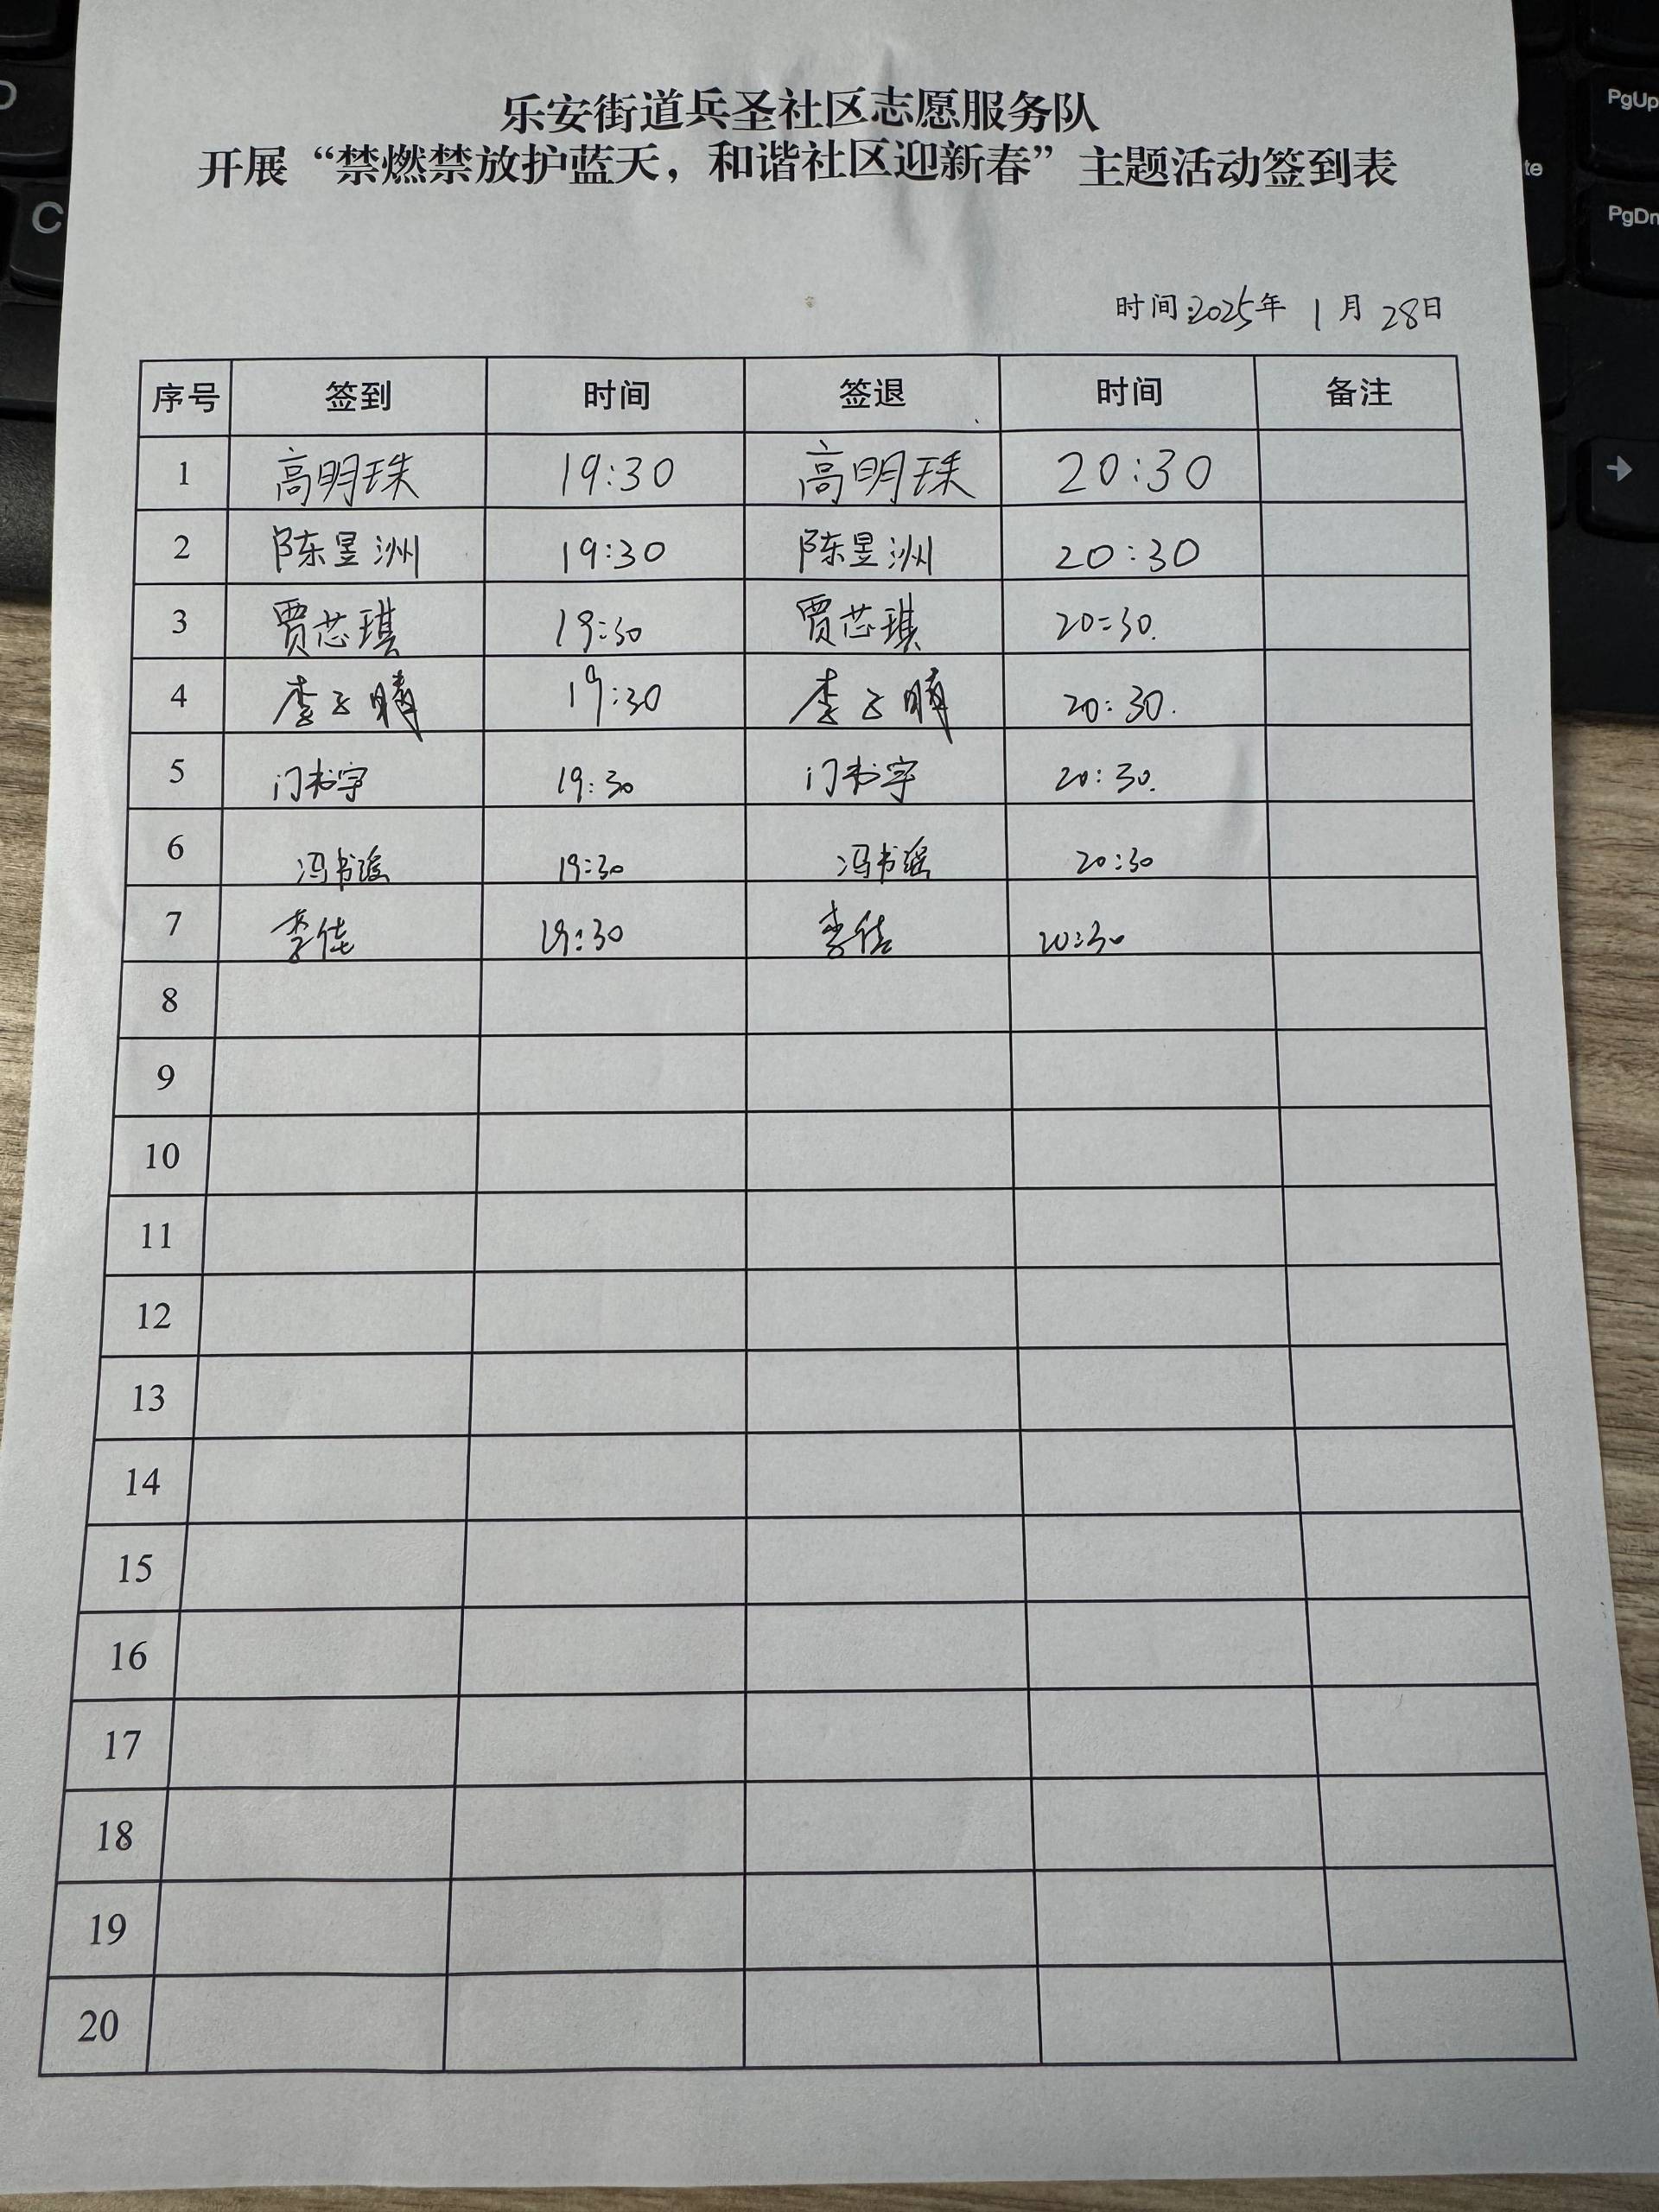 乐安街道兵圣社区志愿服务队
开展“禁燃禁放护蓝天，和谐社区迎新春”主题活动签到表
时间:2025年 1月 28日
序号 签到 时间 签退 时间 备注
1 高明珠 19:30 高明珠 20:30
2 陈昱洲 19:30 陈昱洲 20:30
3 贾芯琪 19:30 贾芯琪 20:30.
4 李子晴 19:30 李子晴 20:30.
5 门书宇 19:30 门书宇 20:30.
6 冯书瑶 19:30 冯书瑶 20:30
7 李佳 19:30 李佳 20:30
8
9
10
11
12
13
14
15
16
17
18
19
20
C
PgUp
PgDn